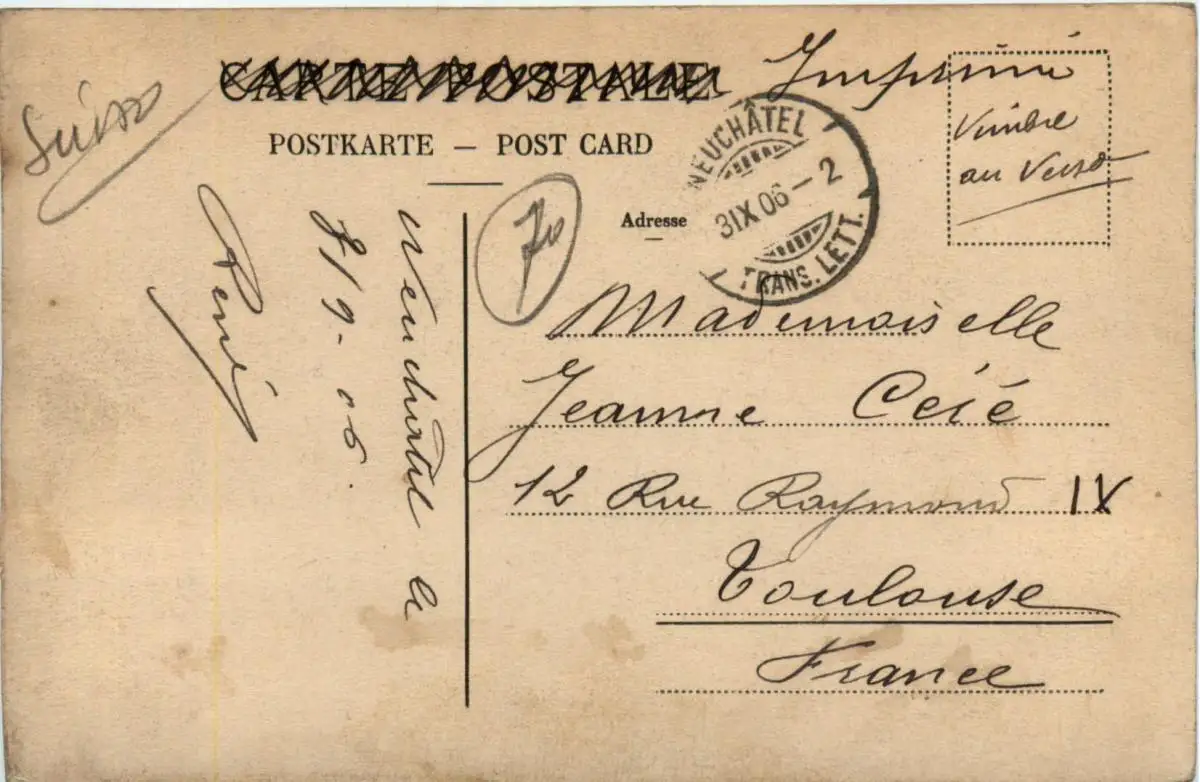 Suisse
CARTE POSTALE
Imprimé
POSTKARTE — POST CARD
Timbre
au Verso
NEUCHÂTEL
3 IX 06 – 2
TRANS. LETT.
70
Adresse
Mademoiselle
Jeanne Céié
12 Rue Raymond IV
Toulouse
France
Neuchâtel le
3/9-06.
René